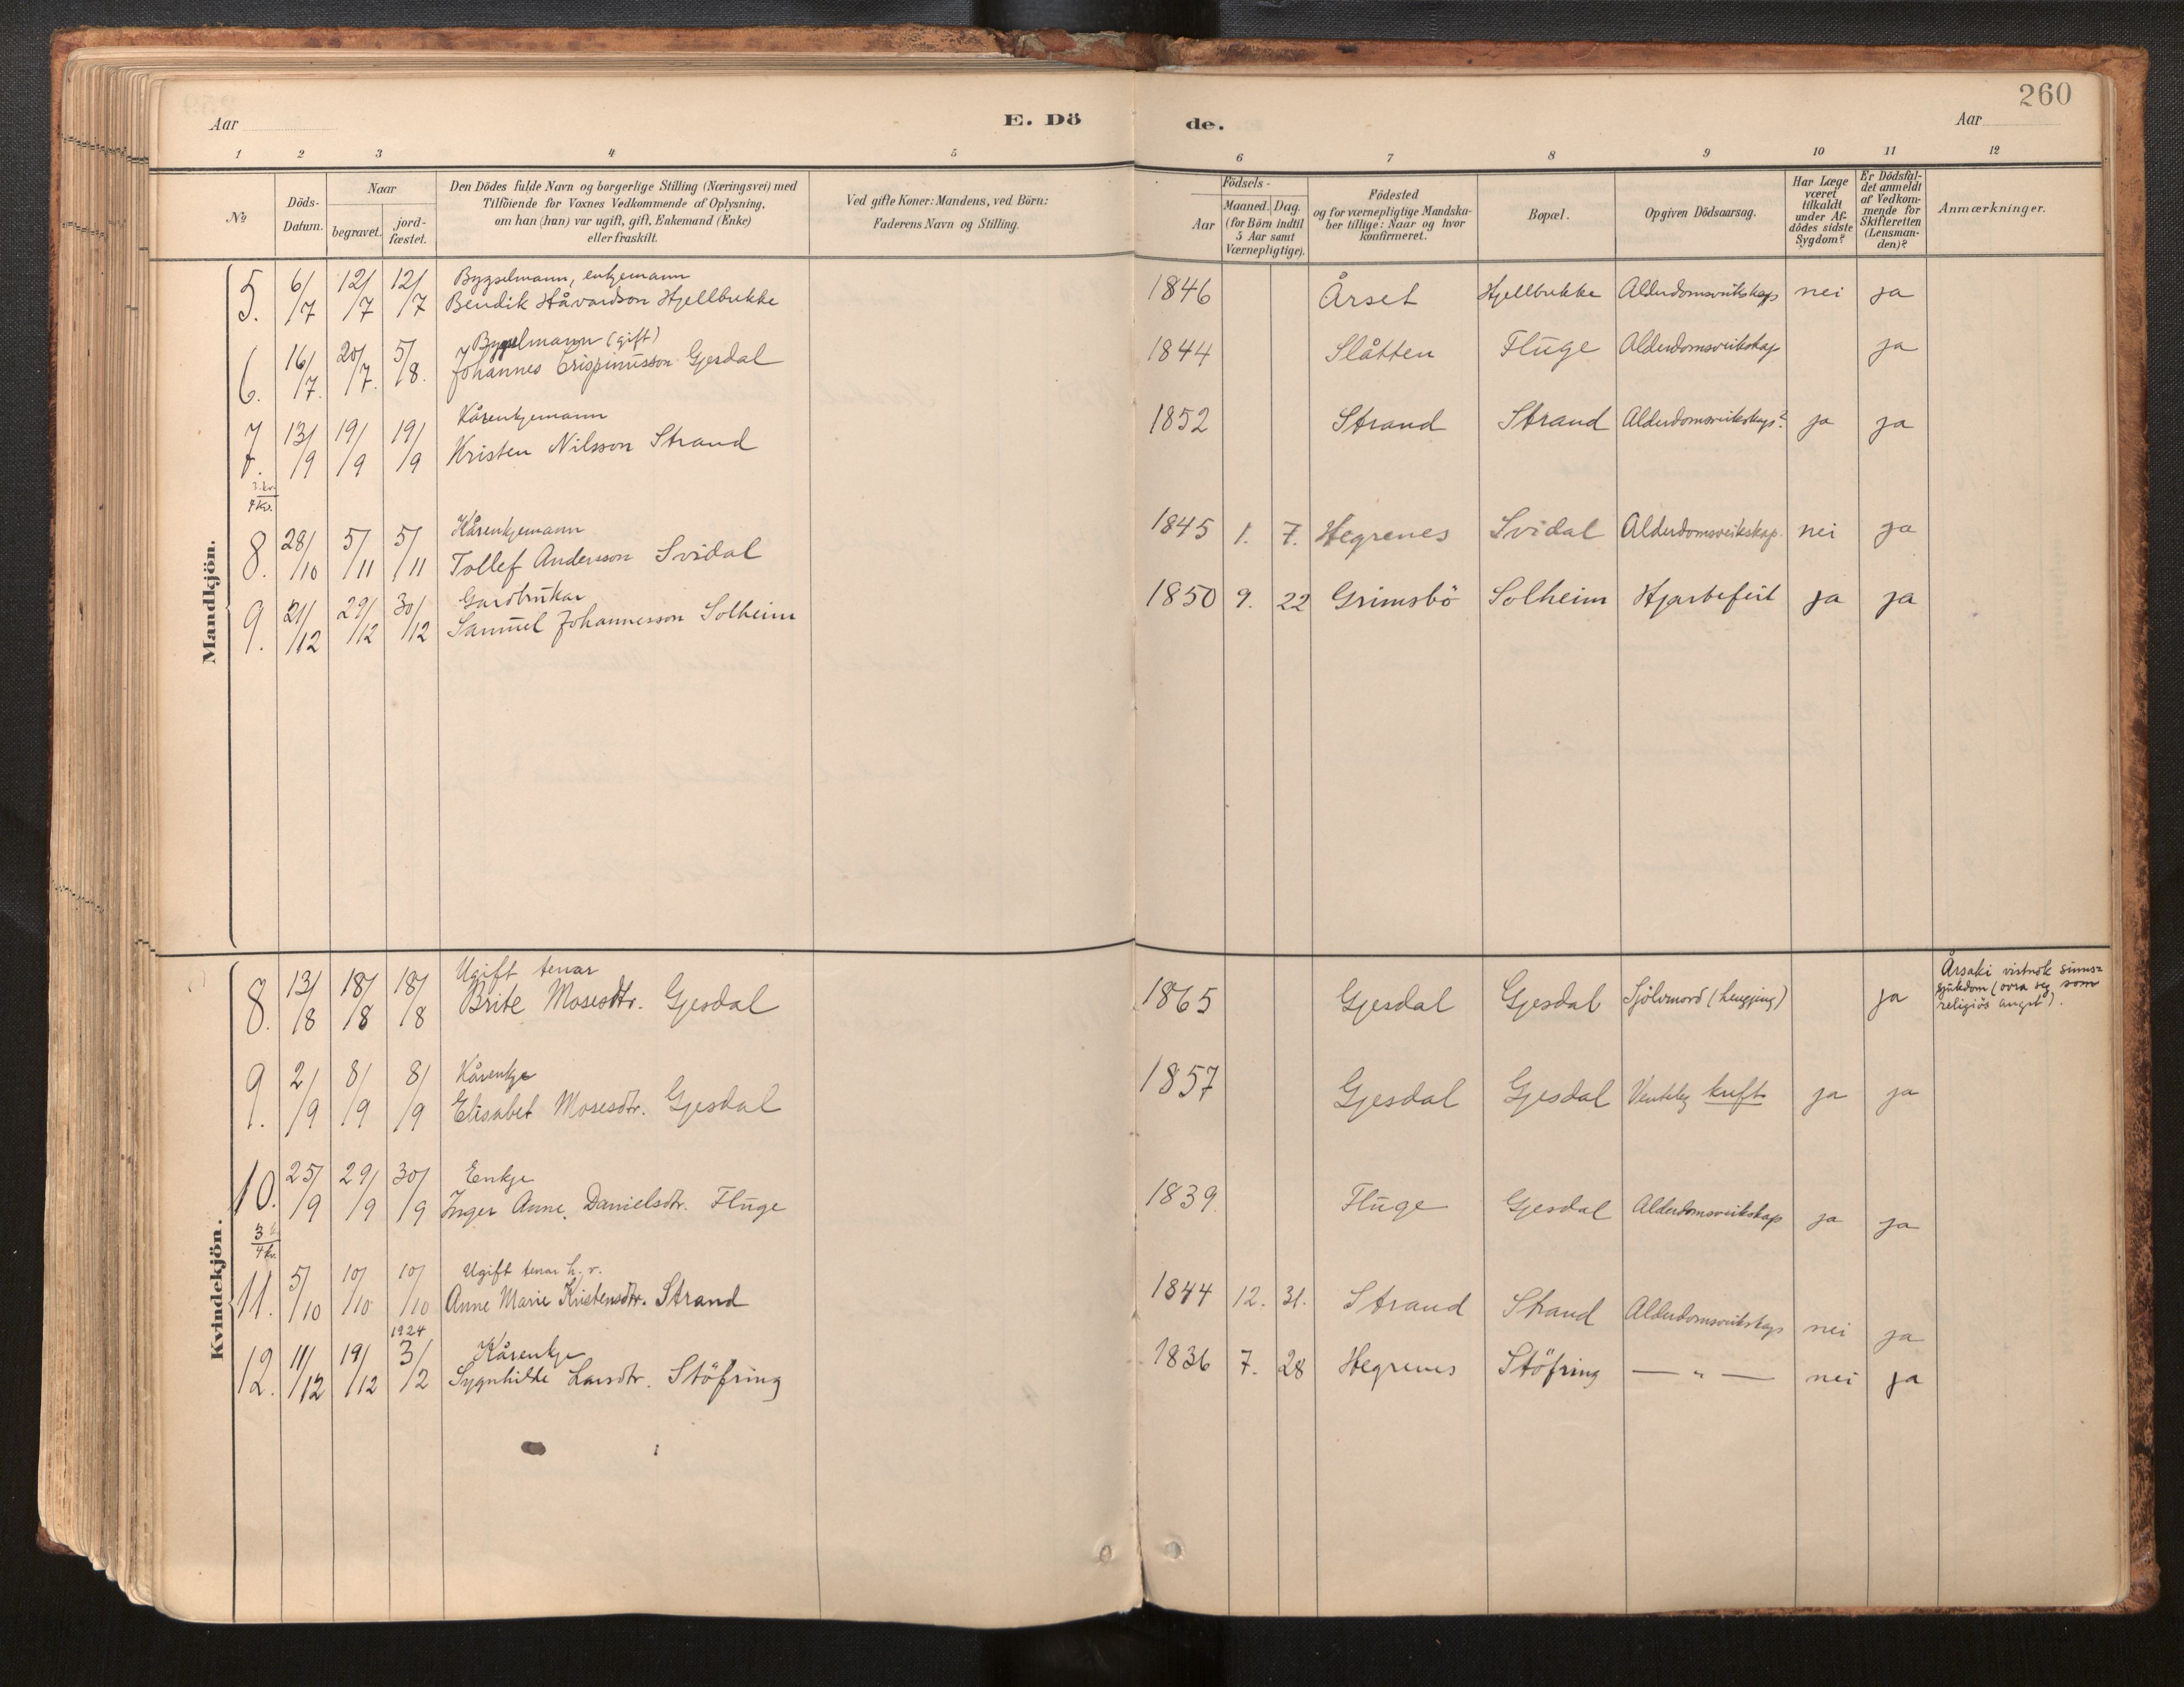 260
Aar
E. Dö
de.
Aar
1 2 3 4 5 6 7 8 9 10 11 12
No
Döds-
Datum.
Naar
begravet.
jord-
fæstet.
Den Dödes fulde Navn og borgerlige Stilling (Næringsvei) med
Tilföiende for Voxnes Vedkommende af Oplysning,
om han (hun) var ugift, gift, Enkemand (Enke)
eller fraskilt.
Ved gifte Koner: Mandens, ved Börn:
Faderens Navn og Stilling.
Födsels-
Aar
Maaned. Dag.
(for Börn indtil
5 Aar samt
Værnepligtige).
Födested
og for værnepligtige Mandska-
ber tillige: Naar og hvor
konfirmeret.
Bopæl.
Opgiven Dödsaarsag.
Har Læge
været
tilkaldt
under Af-
dödes sidste
Sygdom?
Er Dödsfal-
det anmeldt
af Vedkom-
mende for
Skifteretten
(Lensman-
den)?
Anmærkninger.
Mandkjön.
Bygselmann, enkjemann
5. 6/7 12/7 12/7 Bendik Håvardson Hjellbrekke 1846 Årset Hjellbrekke Alderdomsveikskap nei ja
Bygselmann (gift)
6. 16/7. 20/7. 5/8. Johannes Crispinusson Gjesdal 1844 Slåtten Fluge Alderdomsveikskap ja
Kårenkjemann
7. 13/9 19/9 19/9 Kristen Nilsson Strand 1852 Strand Strand Alderdomsveikskap? ja ja
3. kv.
4 kv.
Kårenkjemann
8. 28/10 5/11 5/11 Tollef Andersson Svidal 1845 1. 7. Hegrenes Svidal Alderdomsveikskap. nei ja
Gardbrukar
9. 21/12 29/12 30/12 Samuel Johannesson Solheim 1850 9. 22 Grimsbö Solheim Hjartefeil ja ja
Kvindekjön.
Ugift tenar
8. 13/8 18/8 18/8 Brite Mosesdtr. Gjesdal 1865 Gjesdal Gjesdal Sjölvmord (hengjing) ja
Årsaki vistnok sinns=
sjukdom (ovra seg som
religiös angst).
Kårenkje
9. 2/9 8/9 8/9 Elisabet Mosesdtr. Gjesdal 1857 Gjesdal Gjesdal Venteleg kreft ja ja
Enkje
10. 25/9 29/9 30/9 Inger Anne Danielsdtr. Fluge 1839. Fluge Gjesdal Alderdomsveikskap ja ja
3
4 kv.
Ugift tenar h. v.
11. 5/10 10/10 10/10 Anne Marie Kristensdtr. Strand 1844 12. 31. Strand Strand Alderdomsveikskap nei ja
1924
Kårenkje
12. 11/12 19/12 3/2 Sygnhilde Larsdtr. Stöfring 1836 7. 28 Hegrenes Stöfring — " — nei ja